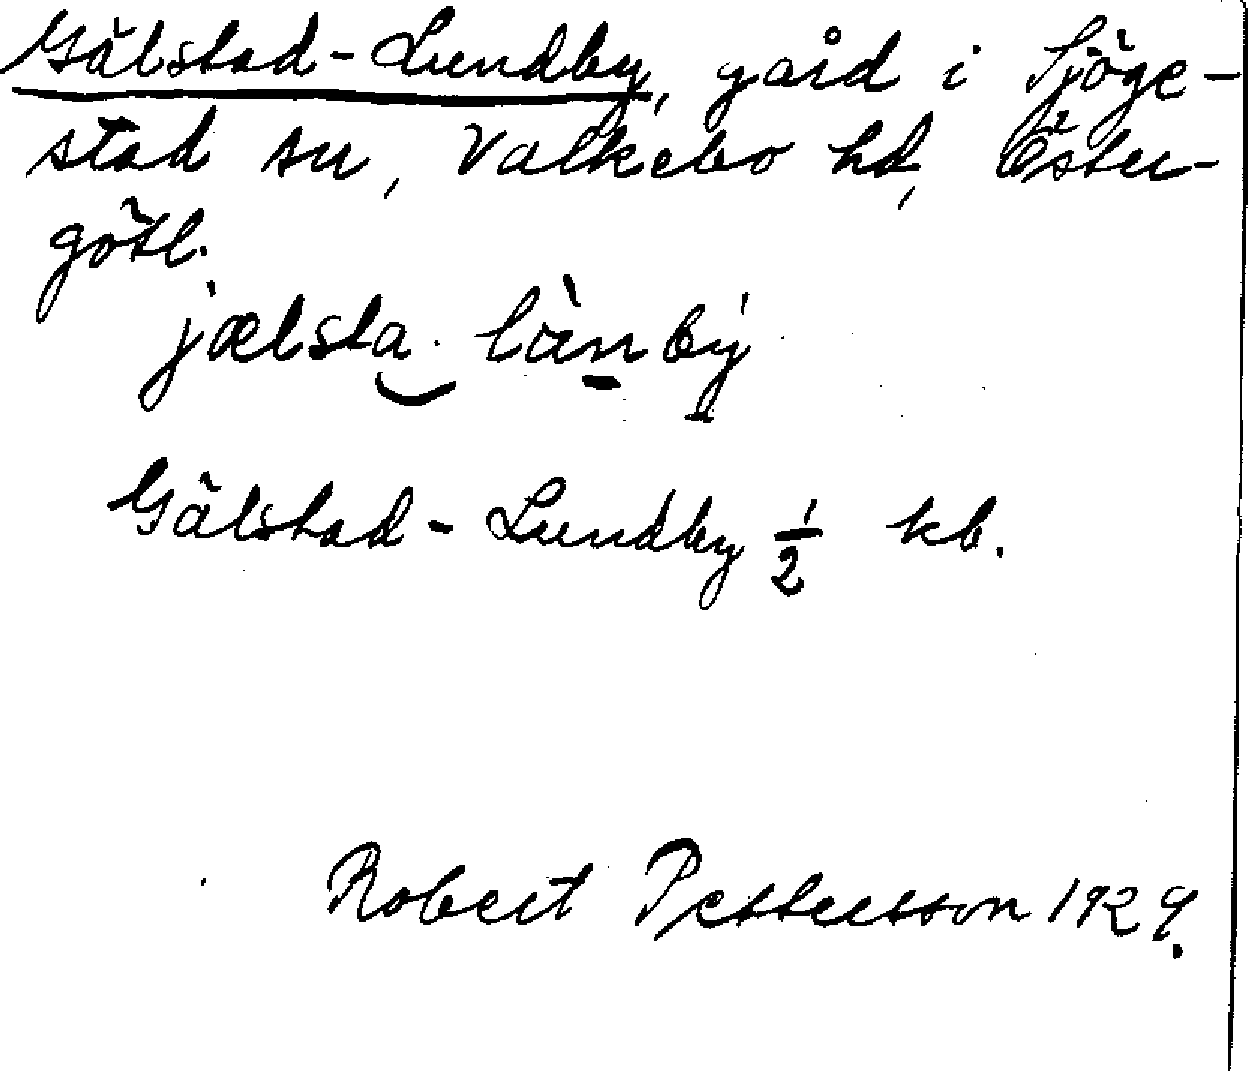 Gälstad-Lundby, gård i Sjöge-
stad sn, Valkebo hd, Öster-
götl.
jælsta lànby
Gälstad-Lundby ½ kb.
Robert Pettersson 1929.